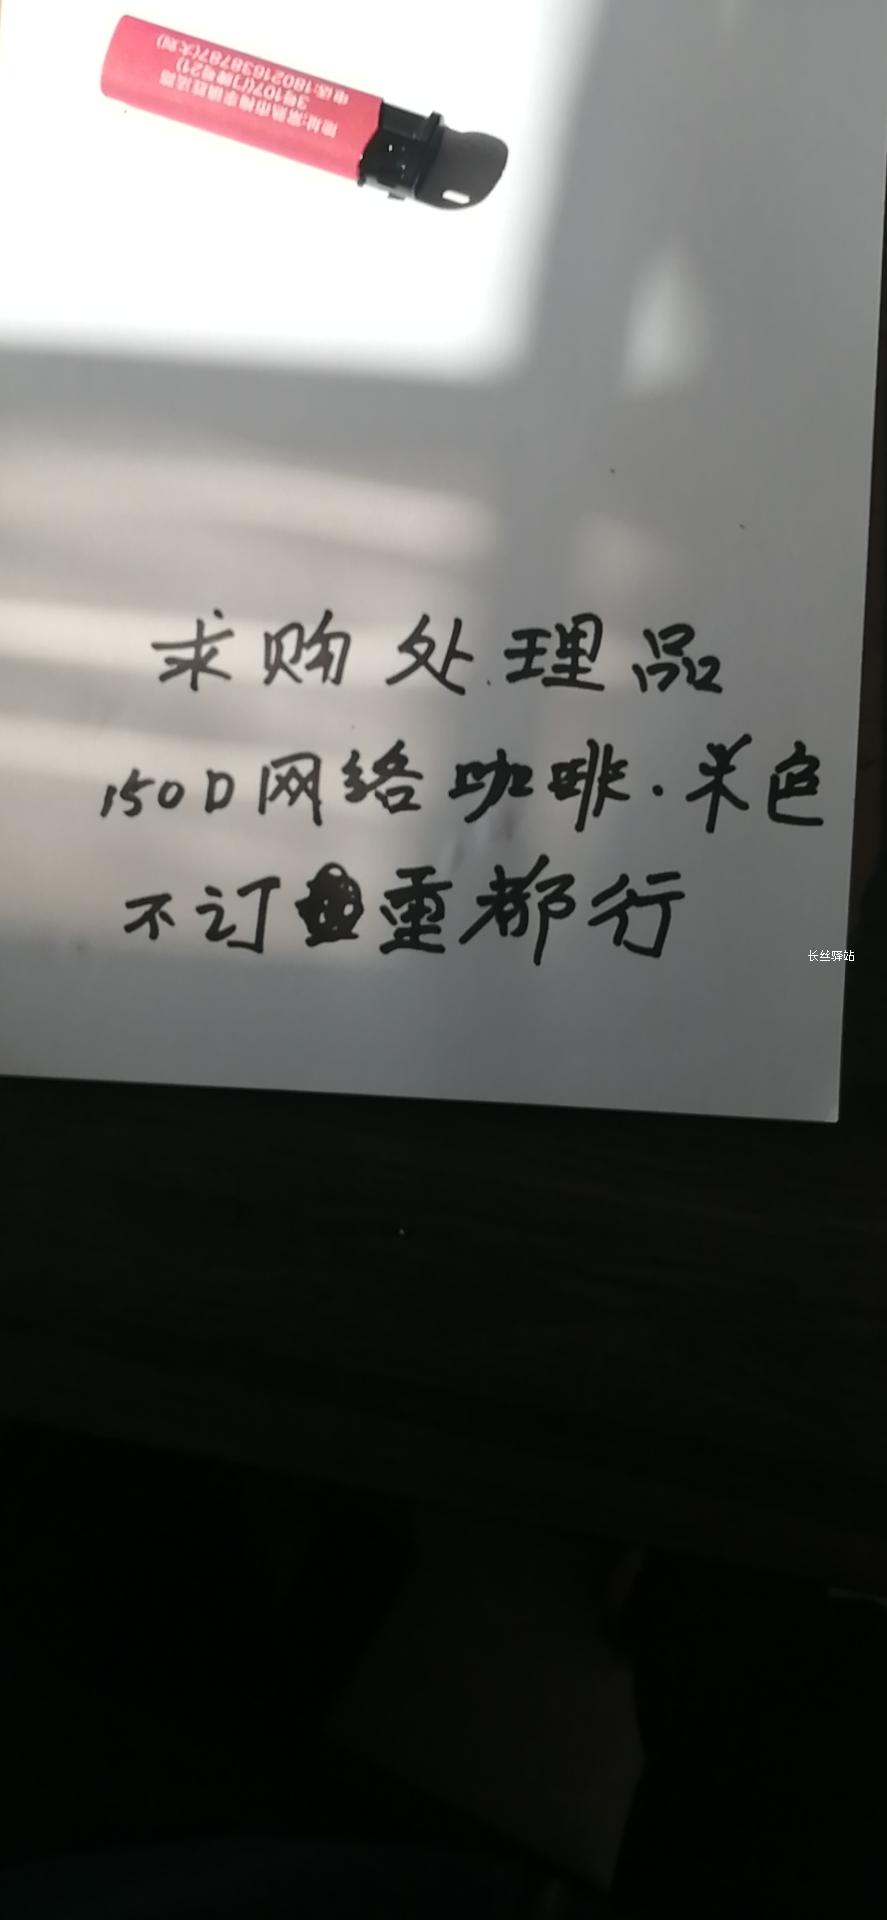 地址:常熟市梅李镇胜法路
3号107(门牌号21)
电话:18021638787(大刘)
求购处理品
150D网络咖啡.米色
不订重都行
长丝驿站